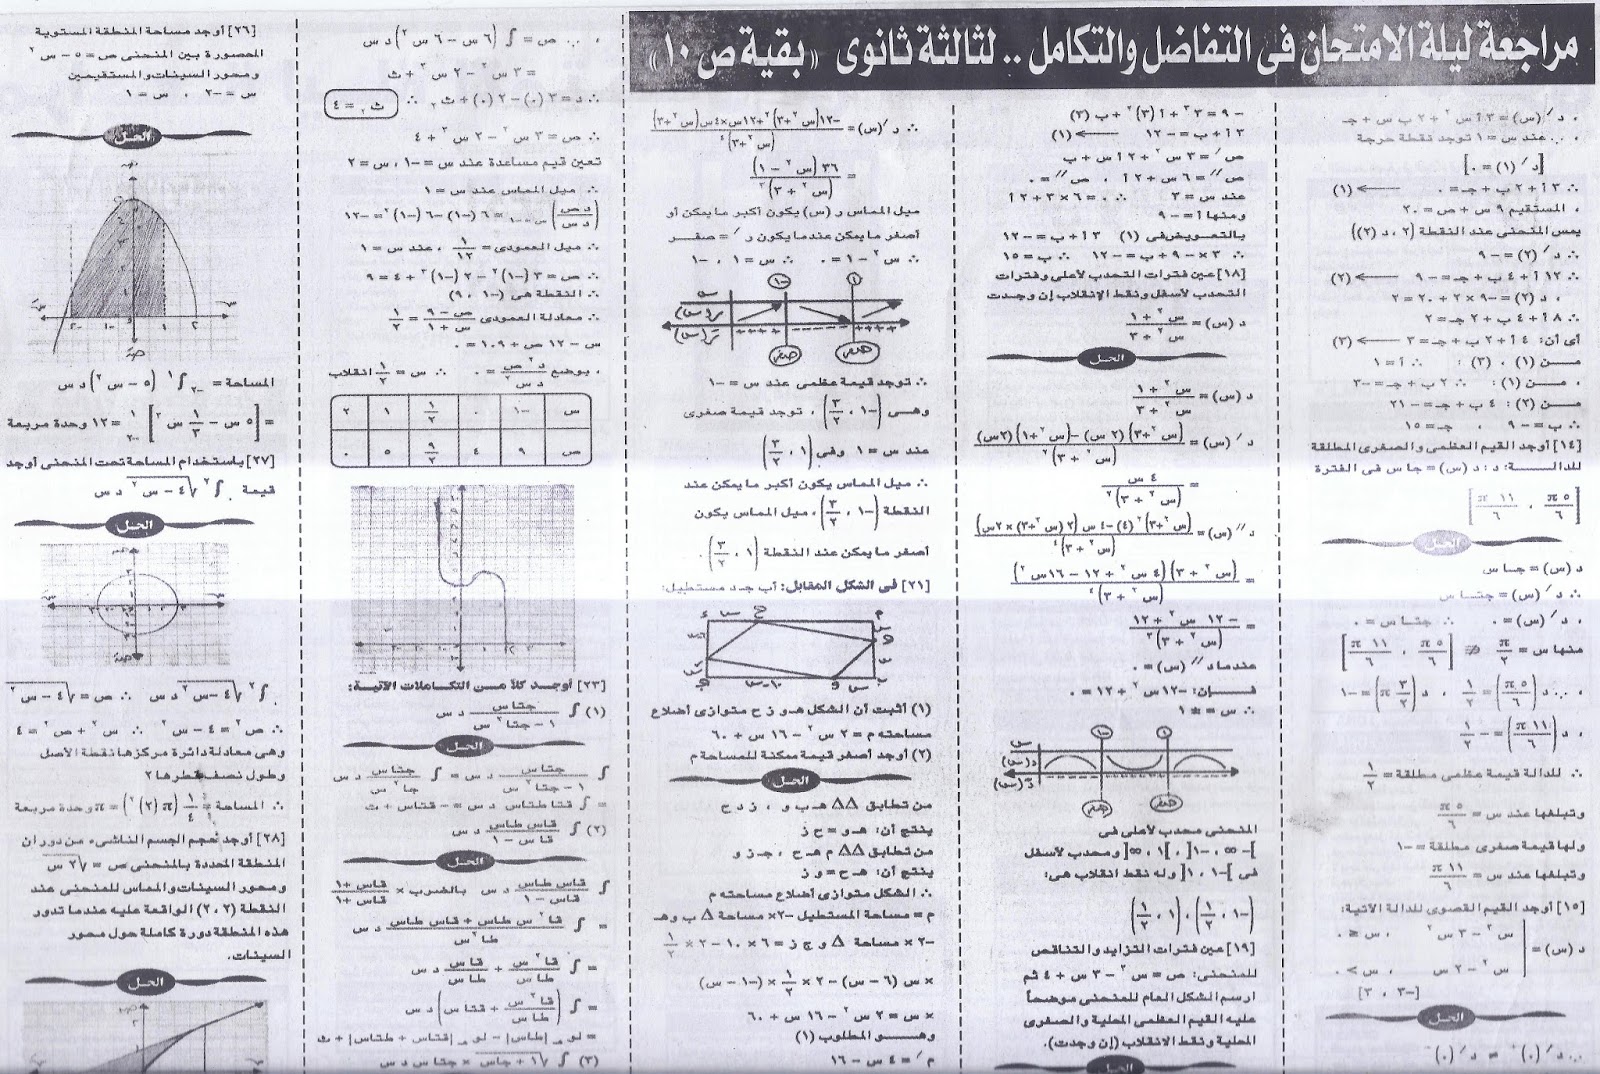 مراجعة ليلة الامتحان فى التفاضل والتكامل .. لثالثة ثانوى «بقية ص ١٠»
، د/(س) = ٣ أ س٢ + ٢ ب س + جـ
، ∵ عند س = ١ توجد نقطة حرجة
[د/ (١) = ٠]
∴ ٣ أ + ٢ ب + جـ = ٠ ← (١)
، المستقيم ٩ س + ص = ٢٠
يمس المنحنى عند النقطة (٢ ، د (٢))
∴ د/ (٢) = -٩
∴ ١٢ أ + ٤ ب + جـ = -٩ ← (٢)
، د (٢) = -٩ × ٢ + ٢٠ = ٢
∴ ٨ أ + ٤ ب + ٢ جـ = ٢
أى أن: ٤ أ + ٢ ب + جـ = ٣ ← (٣)
مـن (١) ، (٣) : ∴ أ = ١
، مـن (١) : ∴ ٢ ب + جـ = -٣
مـن (٢) : ٤ ب + جـ = -٢١
∴ ب = -٩ ، جـ = ١٥
[١٤] أوجد القيم العظمى والصغرى المطلقة
للدالـــــة: د : د (س) = جا س فى الفترة
[٥π/٦ ، ١١π/٦]
الحـل
د (س) = جـا س
∴ د/ (س) = جتـا س
، د/ (س) = ٠ ∴ جتـا س = ٠
منها س = π/٢ ∉ [٥π/٦ ، ١١π/٦]
، ∵ د (٥π/٦) = ١/٢ ، د (٣π/٢) = -١
، د (١١π/٦) = -١/٢
∴ للدالة قيمة عظمى مطلقة = ١/٢
وتبلغها عند س = ٥π/٦
ولها قيمة صغرى مطلقة = -١
وتبلغها عند س = ١١π/٦
[١٥] أوجد القيم القصوى للدالة الآتية:
س٢ - ٣ س٢ ، س ≥ ٠
د (س) =
س٢ - ٢ س ، س > ٠
[-٣ ، ٣]
الحـل
∵ د/ (٠)+ = د/ (٠)-
-٩ = ٣٣ + أ (٣)٢ + ب (٣)
٣ أ + ب = -١٢ ← (١)
ص/ = ٣ س٢ + ٢ أ س + ب
ص// = ٦ س + ٢ أ ، ص// = ٠
عند س = ٣ ∴ ٠ = ٦ × ٣ + ٢ أ
ومنها أ = -٩
بالتعويض فى (١) ٣ أ + ب = -١٢
∴ ٣ × -٩ + ب = -١٢ ∴ ب = ١٥
[١٨] عين فترات التحدب لأعلى وفترات
التحدب لأسفل ونقط الإنقلاب إن وجدت
د (س) = (س٢ + ١)/(س٢ + ٣)
الحـل
د (س) = (س٢ + ١)/(س٢ + ٣)
د/ (س) = ((س٢ + ٣) (٢ س) - (س٢ + ١) (٢ س))/(س٢ + ٣)٢
= ٤ س/(س٢ + ٣)٢
د// (س) = ((س٢ + ٣)٢ (٤) - ٤ س (٢ (س٢ + ٣) × ٢ س))/(س٢ + ٣)٤
= ((س٢ + ٣) (٤ س٢ + ١٢ - ١٦ س٢))/(س٢ + ٣)٤
= (-١٢ س٢ + ١٢)/(س٢ + ٣)٣
عندما د// (س) = ٠
فـــإن: -١٢ س٢ + ١٢ = ٠
∴ س = ± ١
المنحنى محدب لأعلى فى
]-∞ ، -١[ ، ]١ ، ∞[ ومحدب لأسفل
فى ]-١ ، ١[ وله نقط انقلاب هى:
(-١ ، ١/٢) ، (١ ، ١/٢)
[١٩] عين فترات التزايد والتناقص
للمنحنى: ص = س٣ - ٣ س + ٤ ثم
ارسم الشكل العام للمنحنى موضحاً
عليه القيم العظمى المحلية والصغرى
المحلية ونقط الانقلاب (إن وجدت).
الحـل
∴ د/ (س) = (-١٢ (س٢ + ٣)٢ + ١٢ س × ٤ س (س٢ + ٣))/(س٢ + ٣)٤
= ٣٦ (س٢ - ١)/(س٢ + ٣)٣
ميل المماس ر (س) يكون أكبر ما يمكن أو
أصغر ما يمكن عندما يكون ر/ = صفـر
∴ س٢ - ١ = ٠ ∴ س = ١ ، -١
∴ توجد قيمة عظمى عند س = -١
وهـى (-١ ، ٣/٢) ، توجد قيمة صغرى
عند س = ١ وفى (١ ، ٣/٢)
∴ ميل المماس يكون أكبر ما يمكن عند
النقطة (-١ ، ٣/٢) ، ميل المماس يكون
أصغر ما يمكن عند النقطة (١ ، ٣/٢).
[٢١] فى الشكل المقابل: أ ب جـ د مستطيل:
(١) أثبت أن الشكل هـ و ز ح متوازى أضلاع
مساحته م = ٢ س٢ - ١٦ س + ٦٠
(٢) أوجد أصغر قيمة ممكنة للمساحة م
الحـل
من تطابق △△ هـ ب و ، ز د ح
ينتج أن: هـ و = ح ز
من تطابق △△ م هـ ح ، جـ ز و
ينتج أن: هـ ح = و ز
∴ الشكل متوازى أضلاع مساحته م
م = مساحة المستطيل - ٢ × مساحة △ ب و هـ
-٢ × مساحة △ و جـ ز = ٦ × ١٠ - ٢ × ١/٢
× س (٦ - س) - ٢ × ١/٢ × (١٠ - س)
× س = ٢ س٢ - ١٦ س + ٦٠
وهــو المطلوب (١)
م/ = ٤ س - ١٦
، ∵ ص = ∫ (٦ س - ٦ س٢) د س
= ٣ س٢ - ٢ س٣ + ث
∴ د = ٣ (٠) - ٢ (٠) + ث٢ ∴ ث٢ = ٤
∴ ص = ٣ س٢ - ٢ س٣ + ٤
تعين قيم مساعدة عند س = -١ ، س = ٢
∴ ميل المماس عند س = ١
(د ص/د س) س = -١ = ٦ (-١) - ٦ (-١)٢ = -١٢
∴ ميل العمودى = ١/١٢ ، عند س = ١
∴ ص = ٣ (-١)٢ - ٢ (-١)٣ + ٤ = ٩
∴ النقطة هى (-١ ، ٩)
∴ معادلة العمودى (ص - ٩)/(س + ١) = ١/٢
س - ١٢ ص + ١٠٩ = ٠
، بوضع د٢ص/د س٢ = ٠ ∴ س = ١/٢ انقلاب
س -١ ٠ ١/٢ ١ ٢
ص ٩ ٤ ٩/٢ ٥ ٠
[٢٣] أوجـد كلاً مـن التكاملات الآتية:
(١) ∫ جتا س/(١ - جتا٢ س) د س
الحـل
∫ جتا س/(١ - جتا٢ س) د س = ∫ جتا س/جا٢ س د س
= ∫ قتا س ظتا س د س = - قتا س + ث
(٢) ∫ قا س ظا س/(قا س - ١) د س
الحـل
∫ قا س ظا س/(قا س - ١) د س بالضرب × (قا س + ١)/(قا س + ١)
= ∫ (قا٢ س ظا س + قا س ظا س)/ظا٢ س د س
= ∫ قا٢ س/ظا س + قا س/ظا س
= ∫ (قا٢ س/ظا س + قتا س) د س
= لو |ظا س| - لو |قتا س + ظتا س| + ث
(٣) ∫ √(١ + جا س) × جتا س د س
[٢٦] أوجد مساحة المنطقة المستوية
المحصورة بين المنحنى ص = ٥ - س٢
ومحور السينات والمستقيمين
س = -٢ ، س = ١
الحـل
المساحة = -٢∫١ (٥ - س٢) د س
= [٥ س - ١/٣ س٣]١-٢ = ١٢ وحدة مربعة
[٢٧] باستخدام المساحة تحت المنحنى أوجد
قيمة ٠∫٢ √(٤ - س٢) د س
الحـل
٠∫٢ √(٤ - س٢) د س ∴ ص = √(٤ - س٢)
∴ ص٢ = ٤ - س٢ ∴ س٢ + ص٢ = ٤
وهى معادلة دائرة مركزها نقطة الأصل
وطول نصف قطرها ٢
∴ المساحة = ١/٤ π (٢)٢ = π وحدة مربعة
[٢٨] أوجد حجم الجسم الناشىء من دوران
المنطقة المحددة بالمنحنى ص = √(٢ س)
ومحور السينات والمماس للمنحنى عند
النقطة (٢ ، ٢) الواقعة عليه عندما تدور
هذه المنطقة دورة كاملة حول محور
السينات.
الحـل